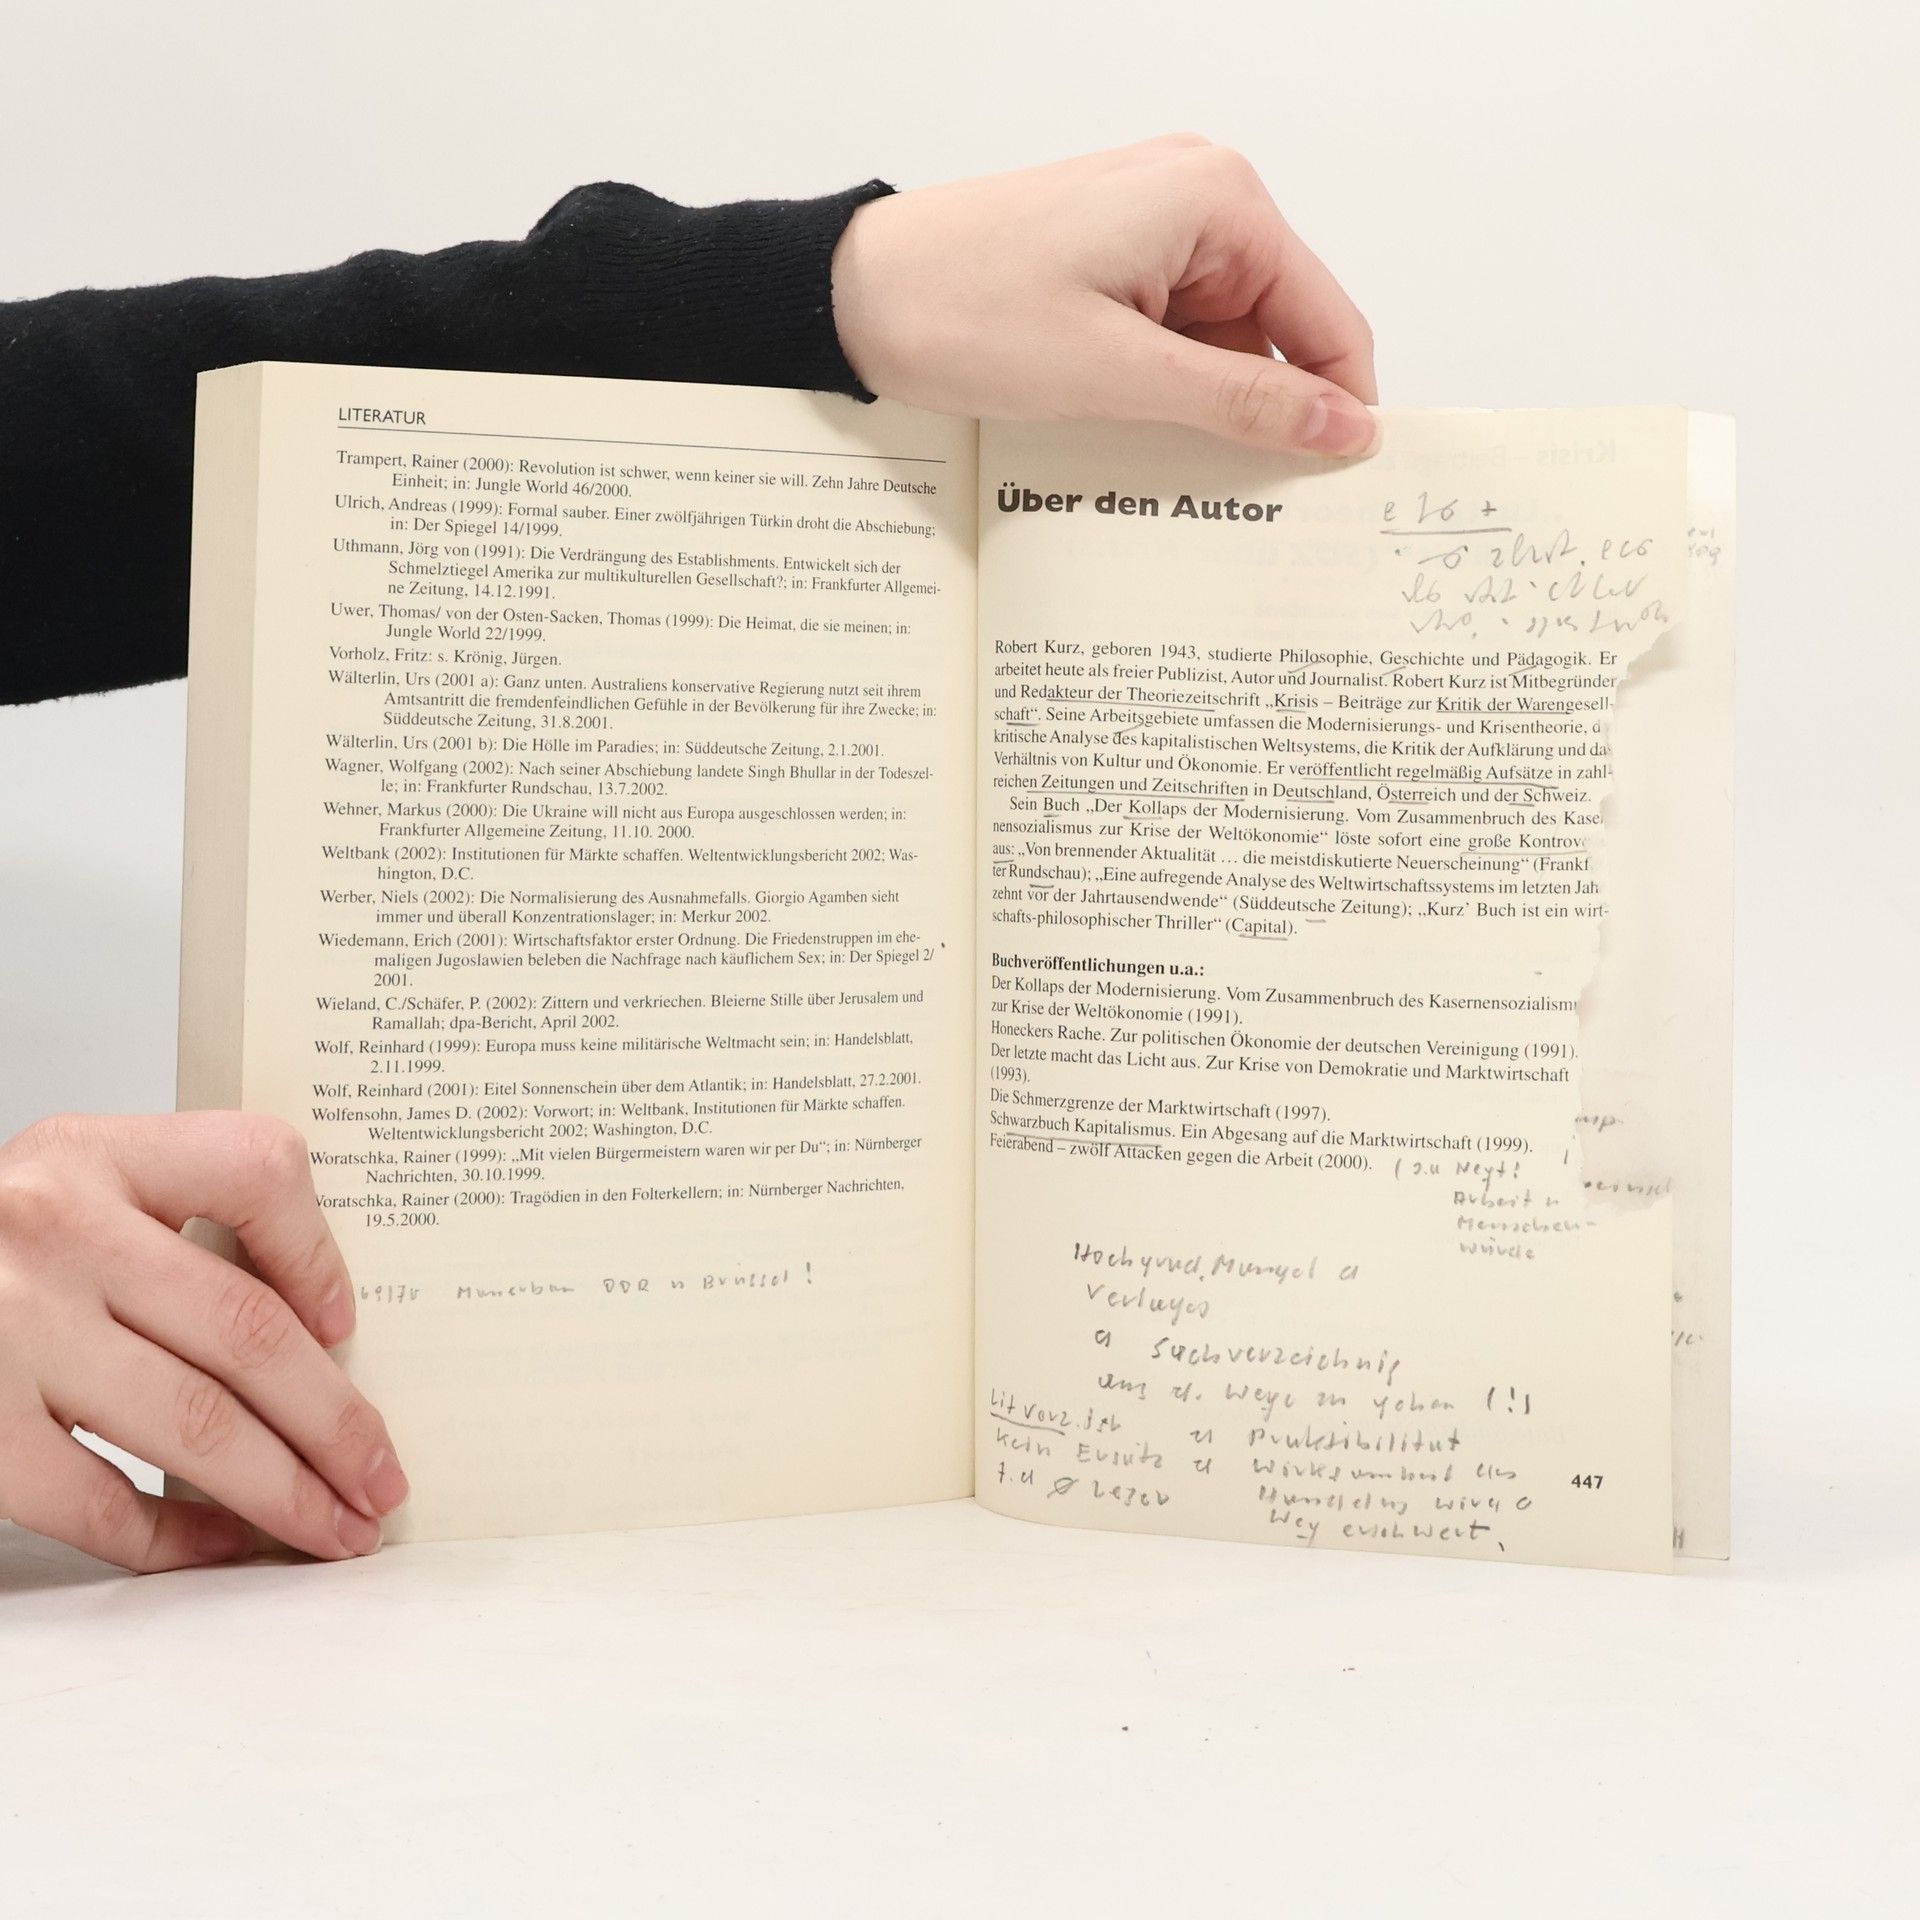 LITERATUR
Trampert, Rainer (2000): Revolution ist schwer, wenn keiner sie will. Zehn Jahre Deutsche
Einheit; in: Jungle World 46/2000.
Ulrich, Andreas (1999): Formal sauber. Einer zwölfjährigen Türkin droht die Abschiebung;
in: Der Spiegel 14/1999.
Uthmann, Jörg von (1991): Die Verdrängung des Establishments. Entwickelt sich der
Schmelztiegel Amerika zur multikulturellen Gesellschaft?; in: Frankfurter Allgemei-
ne Zeitung, 14.12.1991.
Uwer, Thomas/ von der Osten-Sacken, Thomas (1999): Die Heimat, die sie meinen; in:
Jungle World 22/1999.
Vorholz, Fritz: s. Krönig, Jürgen.
Wälterlin, Urs (2001 a): Ganz unten. Australiens konservative Regierung nutzt seit ihrem
Amtsantritt die fremdenfeindlichen Gefühle in der Bevölkerung für ihre Zwecke; in:
Süddeutsche Zeitung, 31.8.2001.
Wälterlin, Urs (2001 b): Die Hölle im Paradies; in: Süddeutsche Zeitung, 2.1.2001.
Wagner, Wolfgang (2002): Nach seiner Abschiebung landete Singh Bhullar in der Todeszel-
le; in: Frankfurter Rundschau, 13.7.2002.
Wehner, Markus (2000): Die Ukraine will nicht aus Europa ausgeschlossen werden; in:
Frankfurter Allgemeine Zeitung, 11.10. 2000.
Weltbank (2002): Institutionen für Märkte schaffen. Weltentwicklungsbericht 2002; Was-
hington, D.C.
Werber, Niels (2002): Die Normalisierung des Ausnahmefalls. Giorgio Agamben sieht
immer und überall Konzentrationslager; in: Merkur 2002.
Wiedemann, Erich (2001): Wirtschaftsfaktor erster Ordnung. Die Friedenstruppen im ehe-
maligen Jugoslawien beleben die Nachfrage nach käuflichem Sex; in: Der Spiegel 2/
2001.
Wieland, C./Schäfer, P. (2002): Zittern und verkriechen. Bleierne Stille über Jerusalem und
Ramallah; dpa-Bericht, April 2002.
Wolf, Reinhard (1999): Europa muss keine militärische Weltmacht sein; in: Handelsblatt,
2.11.1999.
Wolf, Reinhard (2001): Eitel Sonnenschein über dem Atlantik; in: Handelsblatt, 27.2.2001.
Wolfensohn, James D. (2002): Vorwort; in: Weltbank, Institutionen für Märkte schaffen.
Weltentwicklungsbericht 2002; Washington, D.C.
Woratschka, Rainer (1999): „Mit vielen Bürgermeistern waren wir per Du“; in: Nürnberger
Nachrichten, 30.10.1999.
Woratschka, Rainer (2000): Tragödien in den Folterkellern; in: Nürnberger Nachrichten,
19.5.2000.
DDR Brüssel!
Über den Autor
Robert Kurz, geboren 1943, studierte Philosophie, Geschichte und Pädagogik. Er
arbeitet heute als freier Publizist, Autor und Journalist. Robert Kurz ist Mitbegründer
und Redakteur der Theoriezeitschrift „Krisis – Beiträge zur Kritik der Warengesell-
schaft“. Seine Arbeitsgebiete umfassen die Modernisierungs- und Krisentheorie, d
kritische Analyse des kapitalistischen Weltsystems, die Kritik der Aufklärung und das
Verhältnis von Kultur und Ökonomie. Er veröffentlicht regelmäßig Aufsätze in zahl-
reichen Zeitungen und Zeitschriften in Deutschland, Österreich und der Schweiz.
Sein Buch „Der Kollaps der Modernisierung. Vom Zusammenbruch des Kaser
nensozialismus zur Krise der Weltökonomie“ löste sofort eine große Kontrove
aus: „Von brennender Aktualität … die meistdiskutierte Neuerscheinung“ (Frankf
ter Rundschau); „Eine aufregende Analyse des Weltwirtschaftssystems im letzten Jah
zehnt vor der Jahrtausendwende“ (Süddeutsche Zeitung); „Kurz’ Buch ist ein wirt-
schafts-philosophischer Thriller“ (Capital).
Buchveröffentlichungen u.a.:
Der Kollaps der Modernisierung. Vom Zusammenbruch des Kasernensozialism
zur Krise der Weltökonomie (1991).
Honeckers Rache. Zur politischen Ökonomie der deutschen Vereinigung (1991).
Der letzte macht das Licht aus. Zur Krise von Demokratie und Marktwirtschaft
(1993).
Die Schmerzgrenze der Marktwirtschaft (1997).
Schwarzbuch Kapitalismus. Ein Abgesang auf die Marktwirtschaft (1999).
Feierabend – zwölf Attacken gegen die Arbeit (2000).
Arbeit
Menschen-
würde
Verlages
Sachverzeichnis
(!)
kein Ersatz
Leser
erschwert.
447